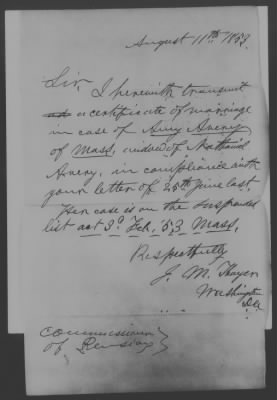 August 11th 1853
Sir, I herewith transmit
a certificate of marriage
in case of Amy Avery
of Mass, widow of Nathaniel
Avery, in compliance with
your letter of 25th June last
Her case is on the suspended
list act 3d Feb, 53 Mass.
Respectfully
J. M. Thayer
Washington
D.C.
Commissioner
of Pensions